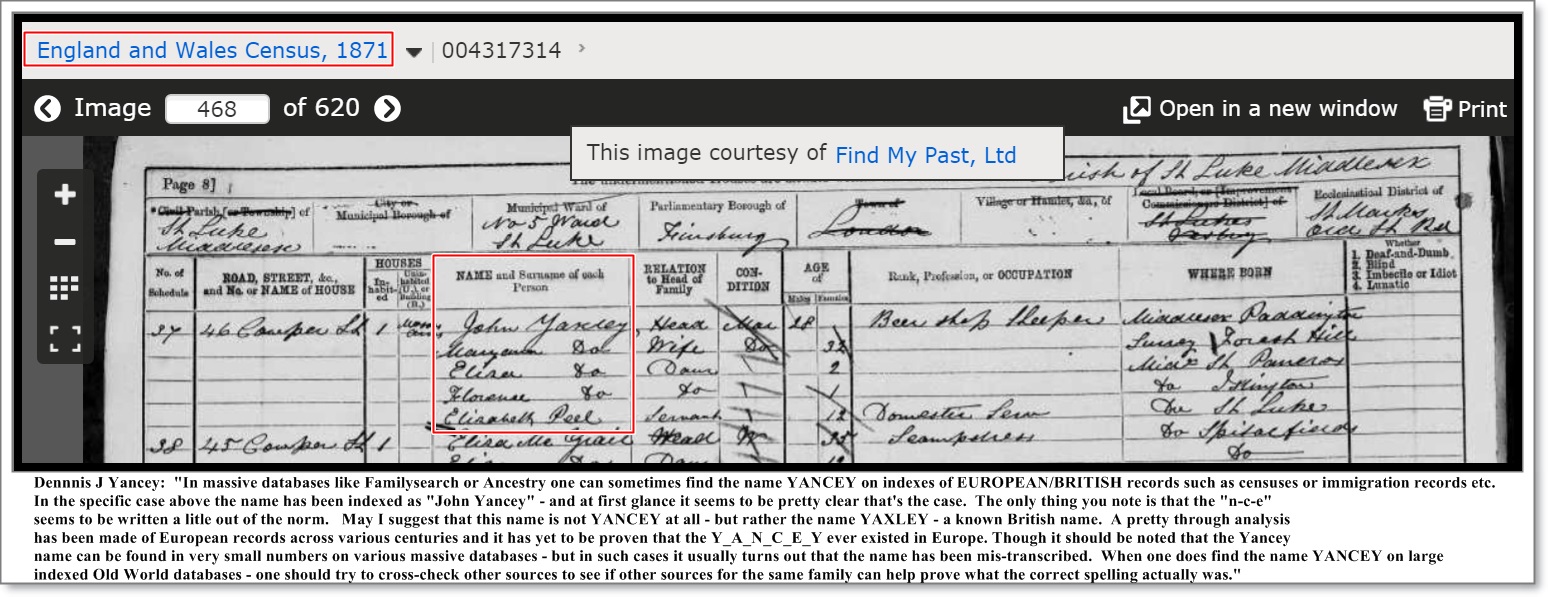 England and Wales Census, 1871 | 004317314 ›
Image 468 of 620
Open in a new window
Print
This image courtesy of Find My Past, Ltd
Page 8]
The undermentioned Houses are
Parish of St Luke Middlesex
Civil Parish [or Township] of
St Luke
Middlesex
City or
Municipal Borough of
Municipal Ward of
No 5 Ward
St Luke
Parliamentary Borough of
Finsbury
Town of
London
Village or Hamlet, &c., of
Local Board, or [Improvement
Commissioners District] of
St Lukes
Ecclesiastical District of
St Marks
Old St Rd
No. of
Schedule
ROAD, STREET, &c.,
and No. or NAME of HOUSE
HOUSES
In-
habit-
ed
Unin-
habited
(U.), or
Building
(B.)
NAME and Surname of each
Person
RELATION
to Head of
Family
CON-
DITION
AGE
of
Males Females
Rank, Profession, or OCCUPATION
WHERE BORN
Whether
1. Deaf-and-Dumb
2. Blind
3. Imbecile or Idiot
4. Lunatic
37 46 Cowper St 1 John Yaxley Head Mar 28 Beer shop Keeper Middlesex Paddington
Maryann Do Wife Do 32 Surrey Forest Hill
Eliza Do Daur 2 Midx St Pancras
Florence Do Do 1 Do Islington
Elizabeth Peel Servant 12 Domestic Serv Do St Luke
38 45 Cowper St 1 Eliza Mc Grail Head W 35 Seampstress Do Spitalfields
Daur Do
Dennnis J Yancey: "In massive databases like Familysearch or Ancestry one can sometimes find the name YANCEY on indexes of EUROPEAN/BRITISH records such as censuses or immigration records etc.
In the specific case above the name has been indexed as "John Yancey" - and at first glance it seems to be pretty clear that's the case. The only thing you note is that the "n-c-e"
seems to be written a litle out of the norm. May I suggest that this name is not YANCEY at all - but rather the name YAXLEY - a known British name. A pretty through analysis
has been made of European records across various centuries and it has yet to be proven that the Y_A_N_C_E_Y ever existed in Europe. Though it should be noted that the Yancey
name can be found in very small numbers on various massive databases - but in such cases it usually turns out that the name has been mis-transcribed. When one does find the name YANCEY on large
indexed Old World databases - one should try to cross-check other sources to see if other sources for the same family can help prove what the correct spelling actually was."